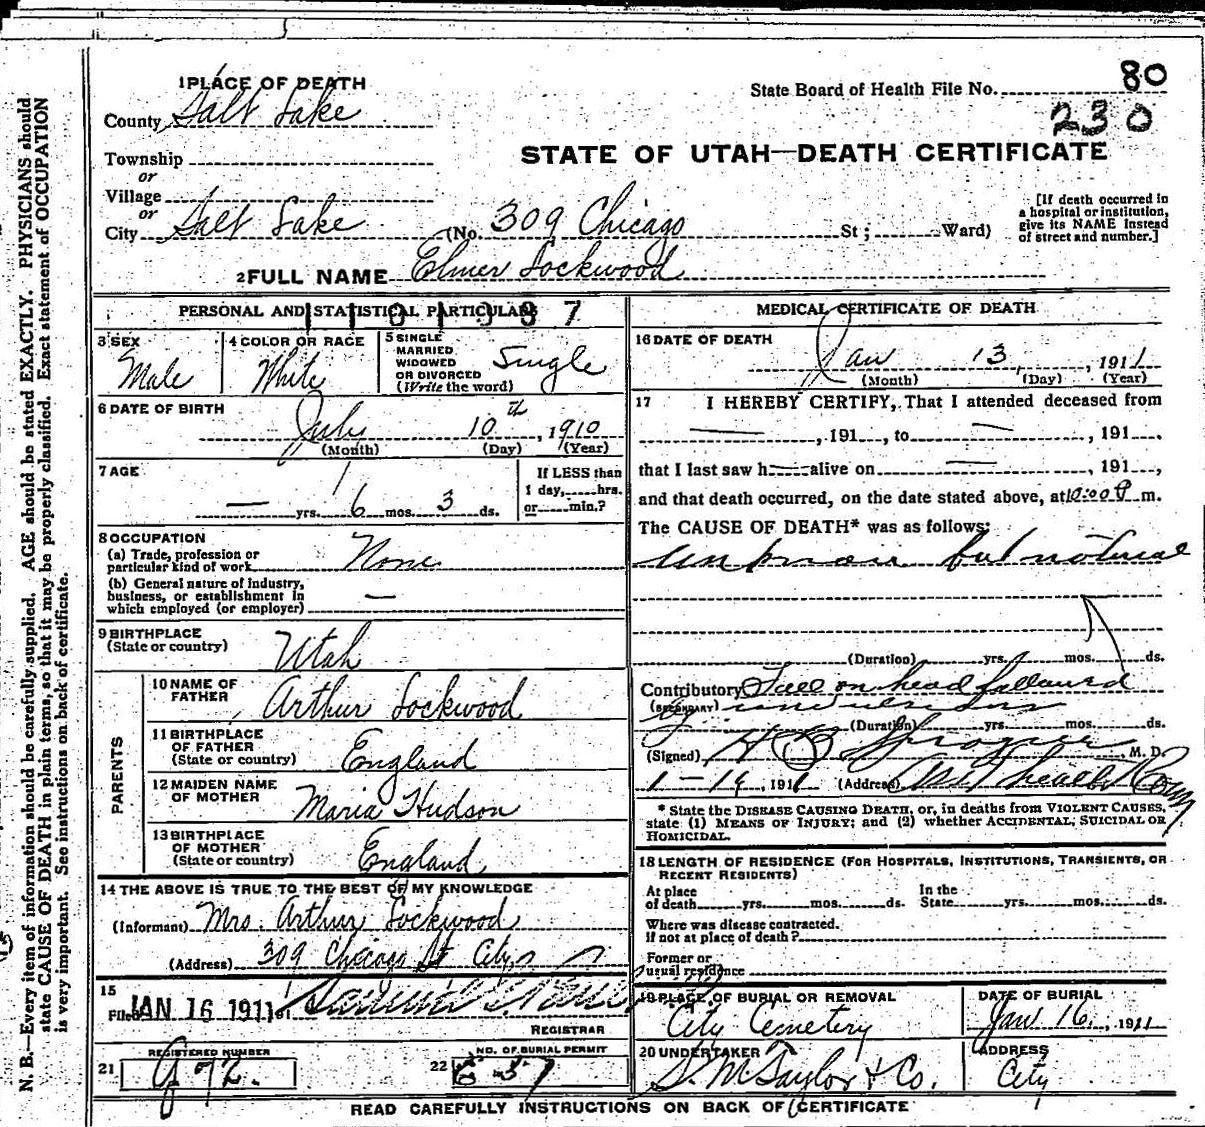 1 PLACE OF DEATH
State Board of Health File No. 80
230
County Salt Lake
STATE OF UTAH—DEATH CERTIFICATE
Township
or
Village
or
City Salt Lake (No. 309 Chicago St; Ward)
[If death occurred in
a hospital or institution,
give its NAME instead
of street and number.]
2 FULL NAME Elmer Lockwood
PERSONAL AND STATISTICAL PARTICULARS
3 SEX
Male
4 COLOR OR RACE
White
5 SINGLE
MARRIED
WIDOWED
OR DIVORCED
(Write the word)
Single
6 DATE OF BIRTH
July 10th, 1910
(Month) (Day) (Year)
7 AGE
— yrs. 6 mos. 3 ds.
If LESS than
1 day, hrs.
or min.?
8 OCCUPATION
(a) Trade, profession or
particular kind of work None
(b) General nature of industry,
business, or establishment in
which employed (or employer) —
9 BIRTHPLACE
(State or country) Utah
PARENTS
10 NAME OF
FATHER Arthur Lockwood
11 BIRTHPLACE
OF FATHER
(State or country) England
12 MAIDEN NAME
OF MOTHER Maria Hudson
13 BIRTHPLACE
OF MOTHER
(State or country) England
14 THE ABOVE IS TRUE TO THE BEST OF MY KNOWLEDGE
(Informant) Mrs. Arthur Lockwood
(Address) 309 Chicago St City
15
Filed JAN 16 1911 191
REGISTRAR
21 REGISTERED NUMBER
G 72.
22 NO. OF BURIAL PERMIT
E 37
MEDICAL CERTIFICATE OF DEATH
16 DATE OF DEATH
Jan 13, 1911
(Month) (Day) (Year)
17 I HEREBY CERTIFY, That I attended deceased from
—, 191 , to —, 191 .
that I last saw h— alive on —, 191 ,
and that death occurred, on the date stated above, at 10:00 P m.
The CAUSE OF DEATH* was as follows:
unknown but natural
(Duration) yrs. mos. ds.
Contributory Fall on head followed
(SECONDARY) by convulsions
(Duration) yrs. mos. ds.
(Signed) H B Sprague M. D.
1-14, 1911 (Address) Asst Health Com
* State the DISEASE CAUSING DEATH, or, in deaths from VIOLENT CAUSES,
state (1) MEANS OF INJURY; and (2) whether ACCIDENTAL, SUICIDAL OR
HOMICIDAL.
18 LENGTH OF RESIDENCE (FOR HOSPITALS, INSTITUTIONS, TRANSIENTS, OR
RECENT RESIDENTS)
At place
of death yrs. mos. ds.
In the
State yrs. mos. ds.
Where was disease contracted.
if not at place of death?
Former or
usual residence
19 PLACE OF BURIAL OR REMOVAL
City Cemetery
DATE OF BURIAL
Jan 16, 1911
20 UNDERTAKER
S. M. Taylor & Co.
ADDRESS
City
READ CAREFULLY INSTRUCTIONS ON BACK OF CERTIFICATE
N. B.—Every item of information should be carefully supplied. AGE should be stated EXACTLY. PHYSICIANS should
state CAUSE OF DEATH in plain terms, so that it may be properly classified. Exact statement of OCCUPATION
is very important. See instructions on back of certificate.